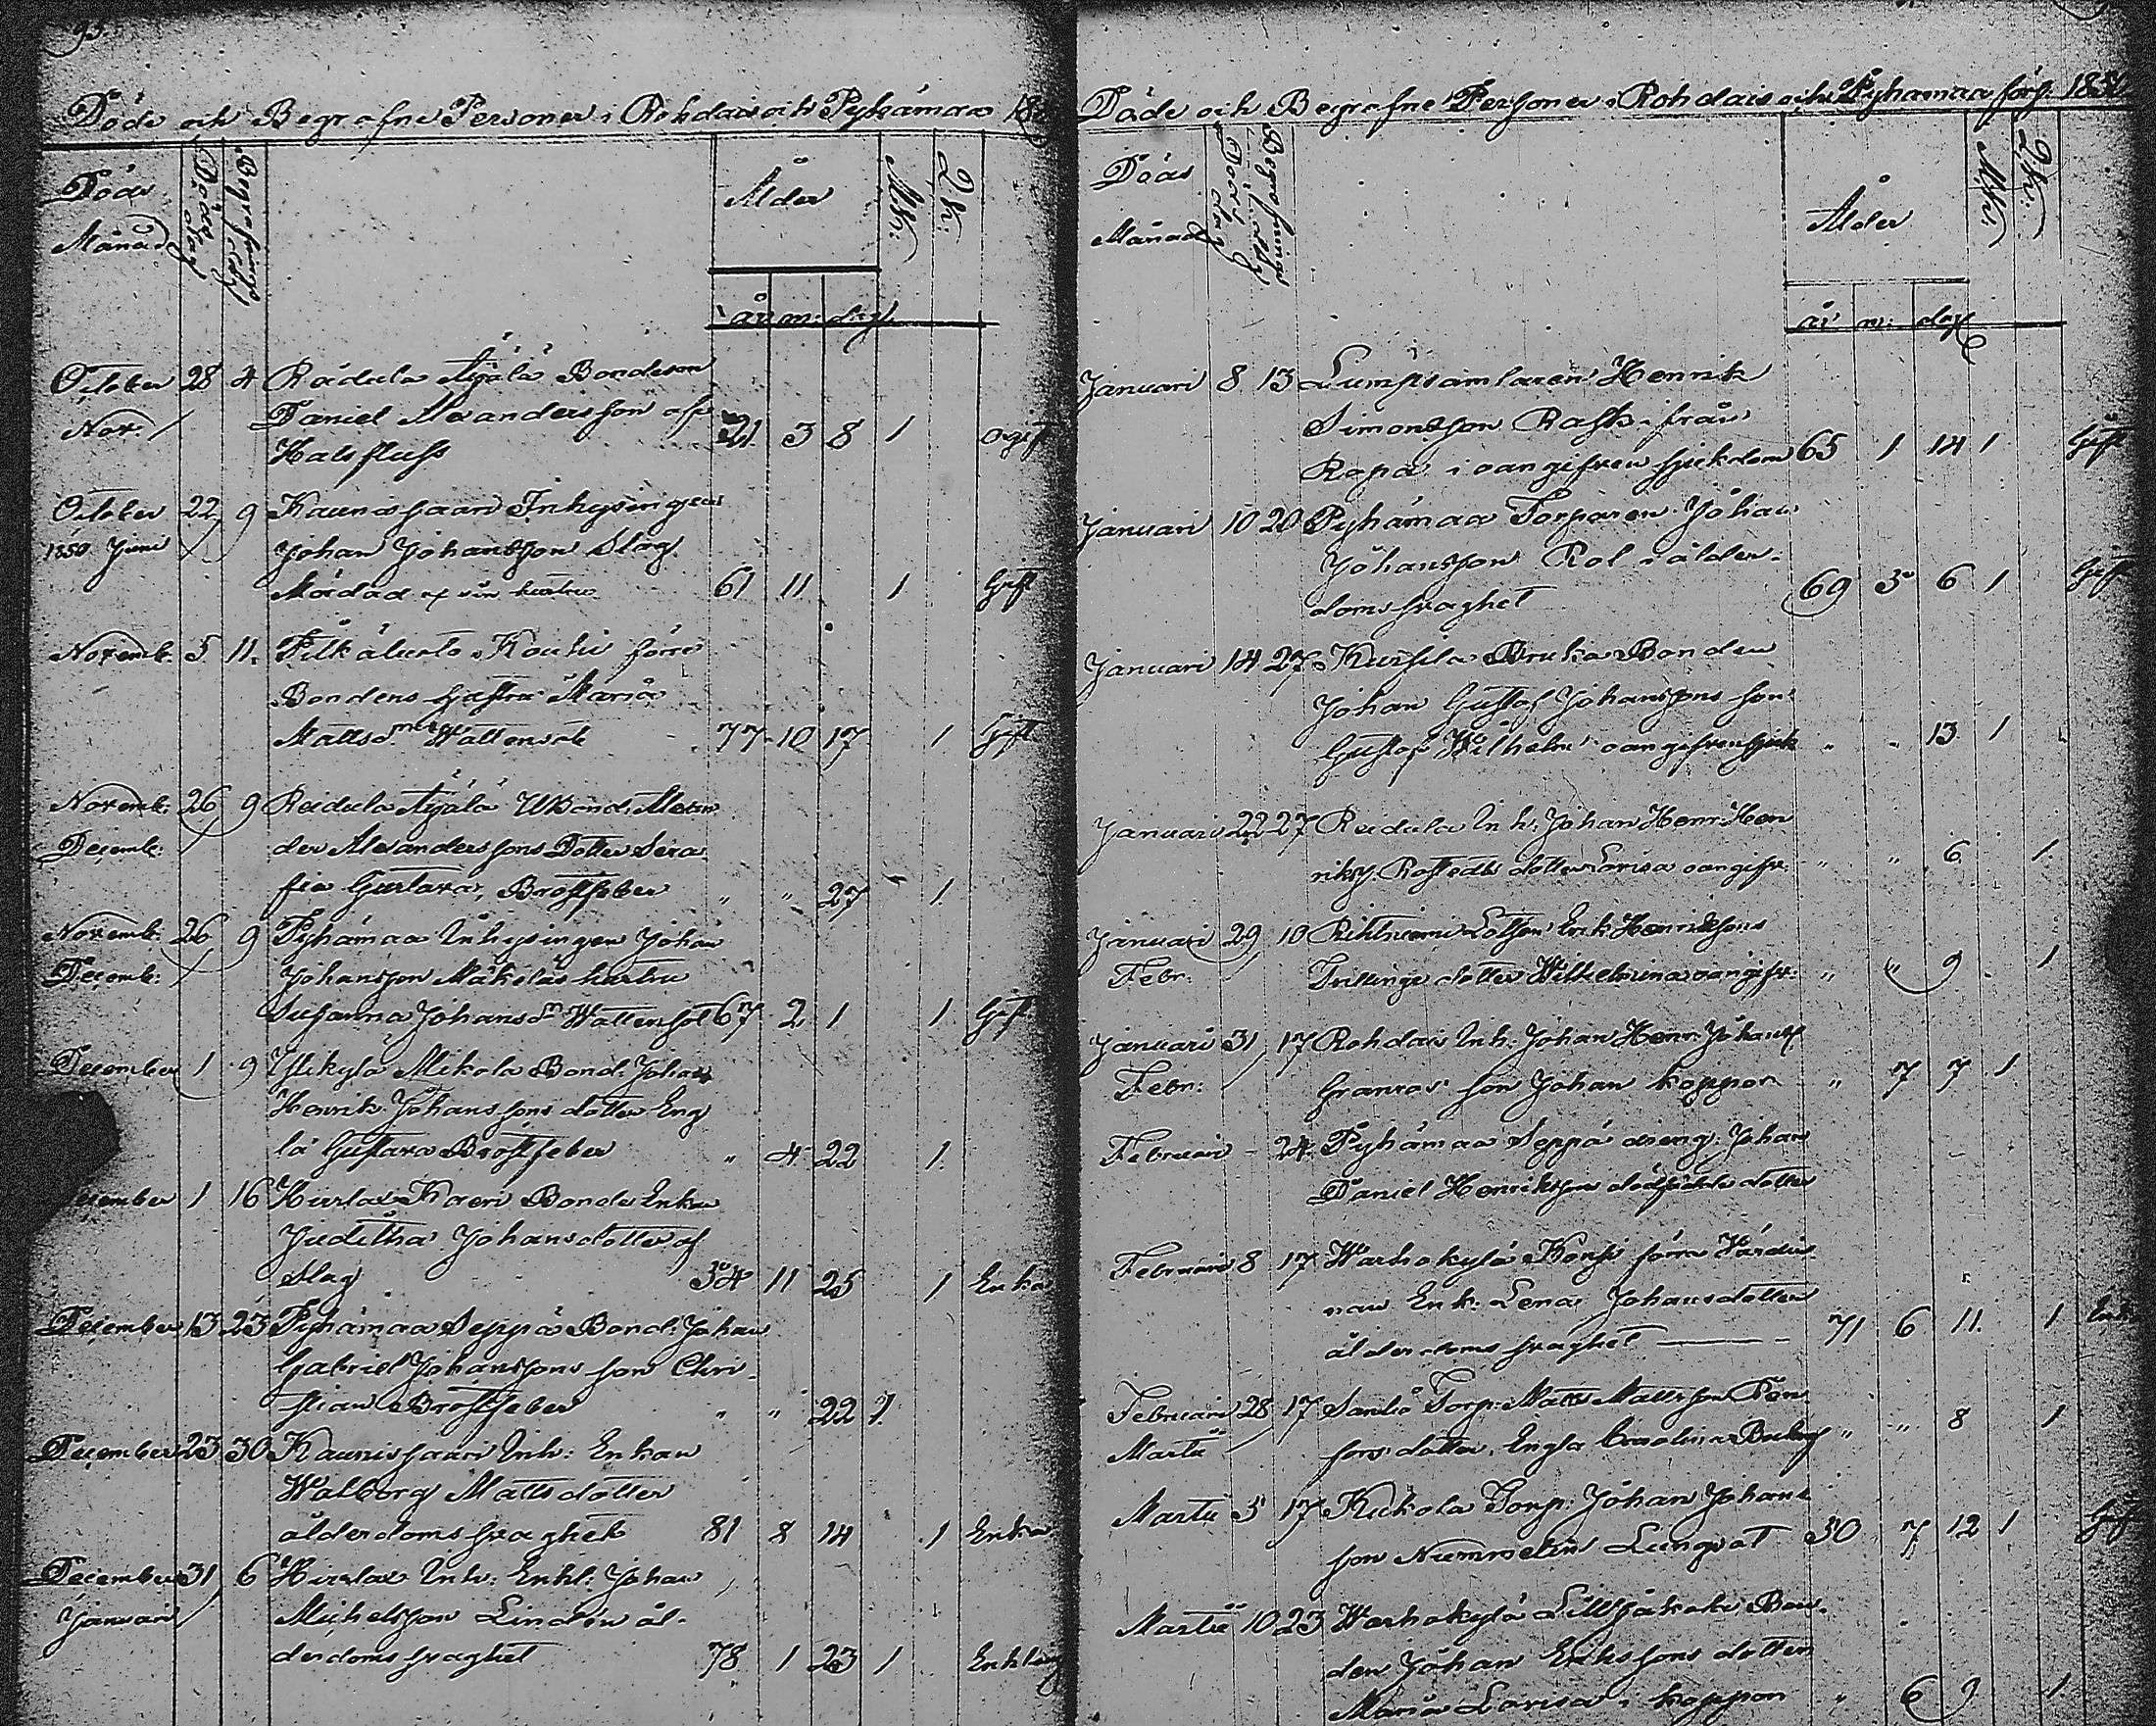 93.
Döde och Begrafne Personer i Rohdais och Pyhämaa 18
Död
Månad
Döds dag
Begrafnings dag
Ålder
M.k:
Q.k:
år m: dag.
October 28 4 Raidula Äyälä Bondeson
Nov. Daniel Alexandersson af
Halsfluss 21 3 8 1 ogift
October 22 9 Kaunissaari Inhysingen
1850 Juni Johan Johansson Slag
Mördad af sin hustru 61 11 1 Gift
Novemb. 5 11. Pitkäluoto Kouhi förre
Bondens hustru Maria
Mattsdr Wattensot 77 10 17 1 Gift
Novemb: 26 9 Raidula Äyälä UBond. Alexan
Decemb: der Alexanderssons Dotter Sera
fia Gustava, Bröstfeber " " 27 1.
Novemb: 26 9 Pyhämaa Inhysingen Johan
Decemb: Johansson Mäkeläs hustru
Susanna Johansdr Wattensot 67 2 1 1 Gift
December 1 9 Ylikylä Mikola Bond. Johan
Henrik Johanssons dotter Eng
la Gustava Bröstfeber " 4 22 1.
ecember 1 16 Hirslax Kaeri Bonde Enkan
Juditha Johansdotter af
Slag 34 11 25 1 Enka
December 13 23 Pyhämaa Seppä Bond: Johan
Gabriel Johanssons son Chri-
stian Bröstfeber " " 22 1.
December 23 30 Kaunissaari Inh: Enkan
Walborg Mattsdotter
ålderdomsswaghet 81 8 14 1 Enka
December 31 6 Hirslax Inh: Enkl: Johan
Januari Michelsson Lindén ål-
derdomsswaghet 78 1 23 1 Enkling
Döde och Begrafne Personer i Rohdais och Pyhämaa förs: 1851
Döds
Månad
Döds dag
Begrafnings dag
Ålder
M.k:
Q.k:
år m: dag
Januari 8 13 Lumpsamlaren Henrik
Simonsson Rask från
Ropa i oangifven sjukdom 65 1 14 1 Gift
Januari 10 20 Pyhämaa Torparen Johan
Johansson Rol i ålder-
domsswaghet 69 3 6 1 Gift
Januari 14 27 Kursila Bruka Bonden
Johan Gustaf Johanssons son
Gustaf Wilhelm oangifven sjuk " " 13 1
Januari 22 27 Raidula Inh: Johan Henr: Hen
rikss. Rostedts dotter Lovisa oangifv. " " 6 1.
Januari 29 10 Rihtniemi Lotsen Erik Henrikssons
Febr: Trillinge dotter Wilhelmina oangifv: " " 9 1
Januari 31 17 Rohdais Inh: Johan Henr. Johanss
Febr: Granros' son Johan koppor " 7 7 1.
Februari - 24. Pyhämaa Seppä dreng: Johan
Daniel Henrikssons dödfödde dotter
Februari 8 17 Warhokylä Konsi förra Värdin
nan Enk: Lena Johansdotter
ålderdomsswaghet 71 6 11. 1 Enka
Februari 28 17 Santio Torp: Matts Mattsson Fors
Martii fors dotter, Engla Carolina " " 8 1
Martii 5 17 Kukola Torp: Johan Johans
son Nummelin Lungsot 50 7 12 1 Gift
Martii 10 23 Warhokylä Lilljakola Bon-
den Johan Erikssons dotter
Maria Lovisa i koppor " 6 9 1.